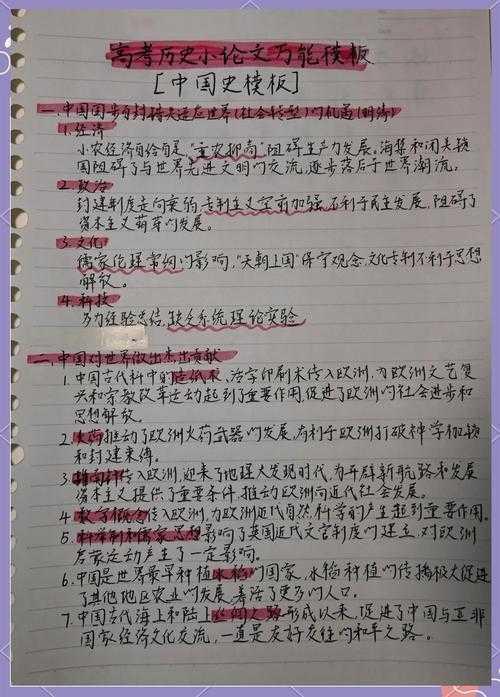 高考历史小论文万能模板
[中国史模板]
一、中国因步自封错失适应世界(社会转型)的机遇(明清)
1.经济
小农经济自给自足,"重农抑商"阻碍生产力发展。海禁和闭关锁
国阻碍了与世界先进文明的交流,逐步落后于世界潮流。
2.政治
封建制度走向衰的专制主义空前加强不利于民主发展,阻碍了
资本主义萌芽的发展。
3.文化
儒家伦理常纲的影响,"天朝上国"保守观念,文化专制不利于思想
解放。
4.科技
多为经验总结,缺乏系统理论实验
二、中国对世界做出杰出贡献
1.中国古代科中的造纸术、活字印刷术传入欧洲,为欧洲文艺复
兴和宗教改革运动起到了重要作用,促进了欧洲的社会进步和
思想解放。
2.火药推动了欧洲火药武器的发展,有利于欧洲打破神学枷锁
和封建束缚。
3.指南针传入欧洲,迎来了地理大发现时代,为开辟新航路和发展
资本主义提供了重要条件,推动欧洲向近代社会发展。
4.数字概念传入欧洲,为欧洲近代自然科学的产生起到重要作用。
5.科举制和儒家思想影响了英国近代文官制度的建立,对欧洲
启蒙运动产生了一定影响。
6.中国是世界最早种植水稻的国家,水稻种植的传播极大促进
了其他地区农业的发展,养活了更多的人口。
7.中国古代海上和陆上丝绸之路形成以来,促进了中国与亚非
国家经济文化交流,一直是友好交往的和平之路。